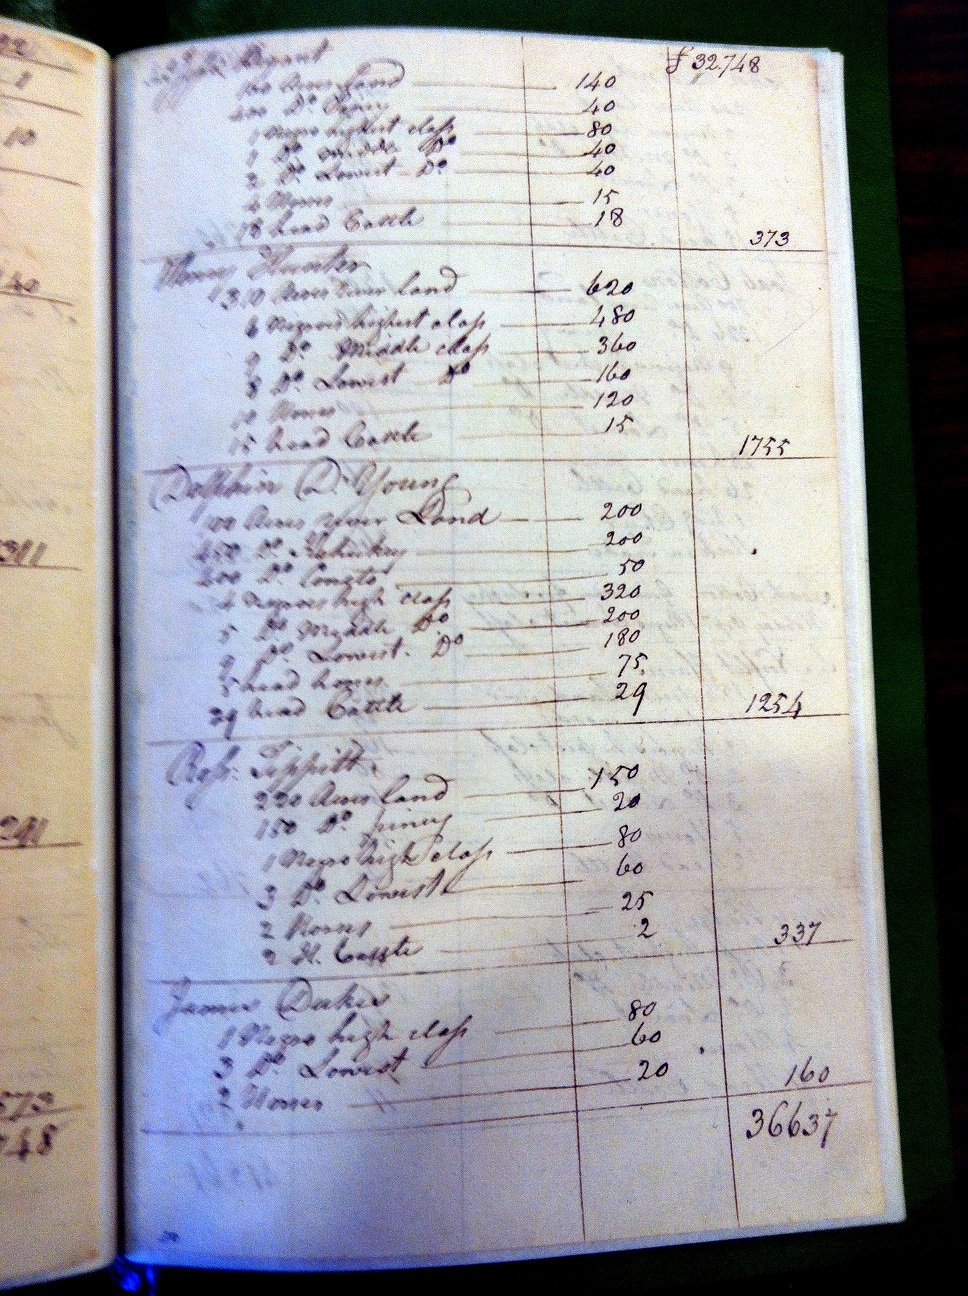 Bryant £ 32,748
100 Acres Land 140
400 Do. Piney 40
1 Negro highest class 80
1 Do. Middle Do 40
2 Do. Lowest Do 40
Horses 15
18 head Cattle 18
373
Henry Hunter
310 Acres river land 620
6 Negroes highest class 480
9 Do. Middle class 360
8 Do. Lowest Do 160
10 Horses 120
15 head Cattle 15
1755
Dolphin D. Young
100 Acres river Land 200
450 Do. 200
200 Do. 50
4 Negroes high class 320
5 Do. Middle Do 200
9 Do. Lowest. Do 180
5 head horses 75
29 head Cattle 29
1254
Tippitt
220 Acres land 150
150 Do. piney 20
1 Negro high class 80
3 Do. Lowest 60
2 Horses 25
2 H. Cattle 2
337
James Dukes
1 Negro high class 80
3 Do. Lowest 60
2 Horses 20
160
36637